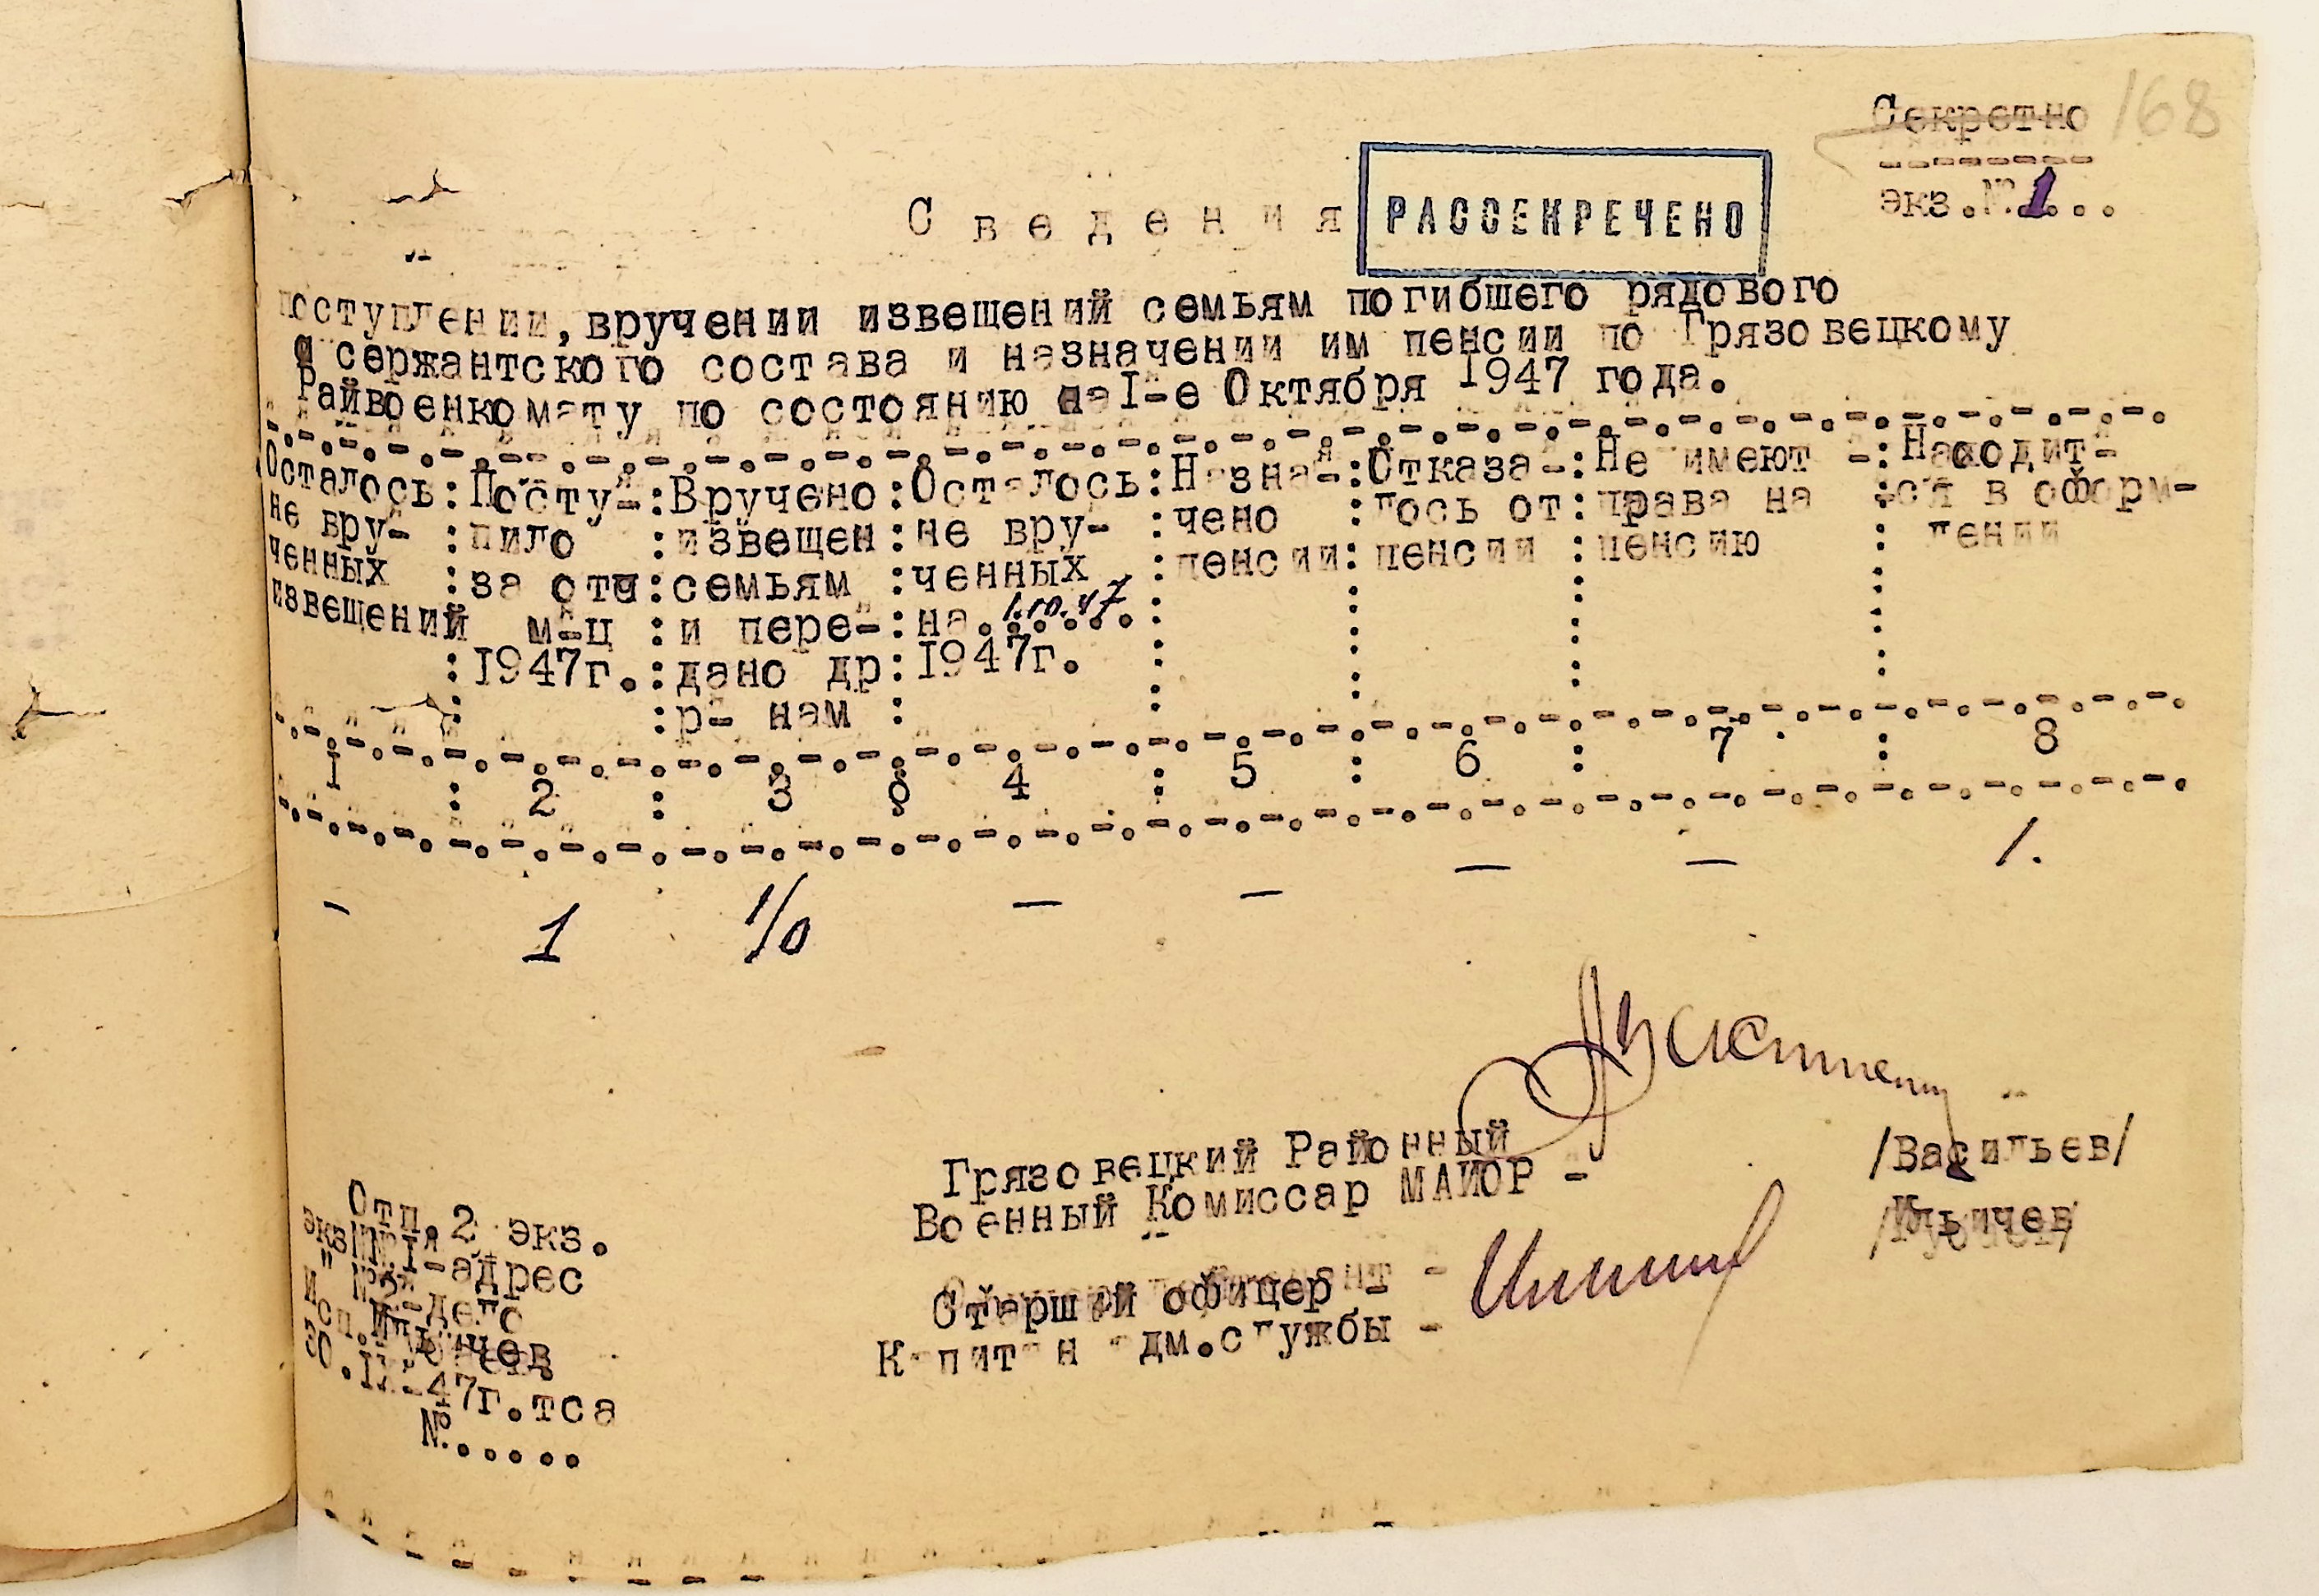 Секретно 168
экз.№ 1...
Сведения
РАССЕКРЕЧЕНО
поступлении, вручении извещений семьям погибшего рядового
и сержантского состава и назначении им пенсии по Грязовецкому
Райвоенкомату по состоянию на I-е Октября 1947 года.
Осталось : Посту- : Вручено : Осталось : Назна- : Отказа- : Не имеют - : Находит-
не вру- : пило : извещен : не вру- : чено : лось от : права на : ся в оформ-
ченных : за отч : семьям : ченных : пенсии : пенсии : пенсию : лении
извещений м-ц : и пере- : на 1.10.47
: I947г. : дано др : I947г.
: р- нам :
I : 2 : 3 : 4 : 5 : 6 : 7 : 8
- 1 1/0 - - - - 1.
Грязовецкий Районный
Военный Комиссар МАЙОР -
/Васильев/
Старший офицер -
Капитан адм.службы -
/Ильичев/
Отп.2 экз.
экз№I-адрес
" №2-дело
исп.Ильичев
30.IX-47г.тса
№......